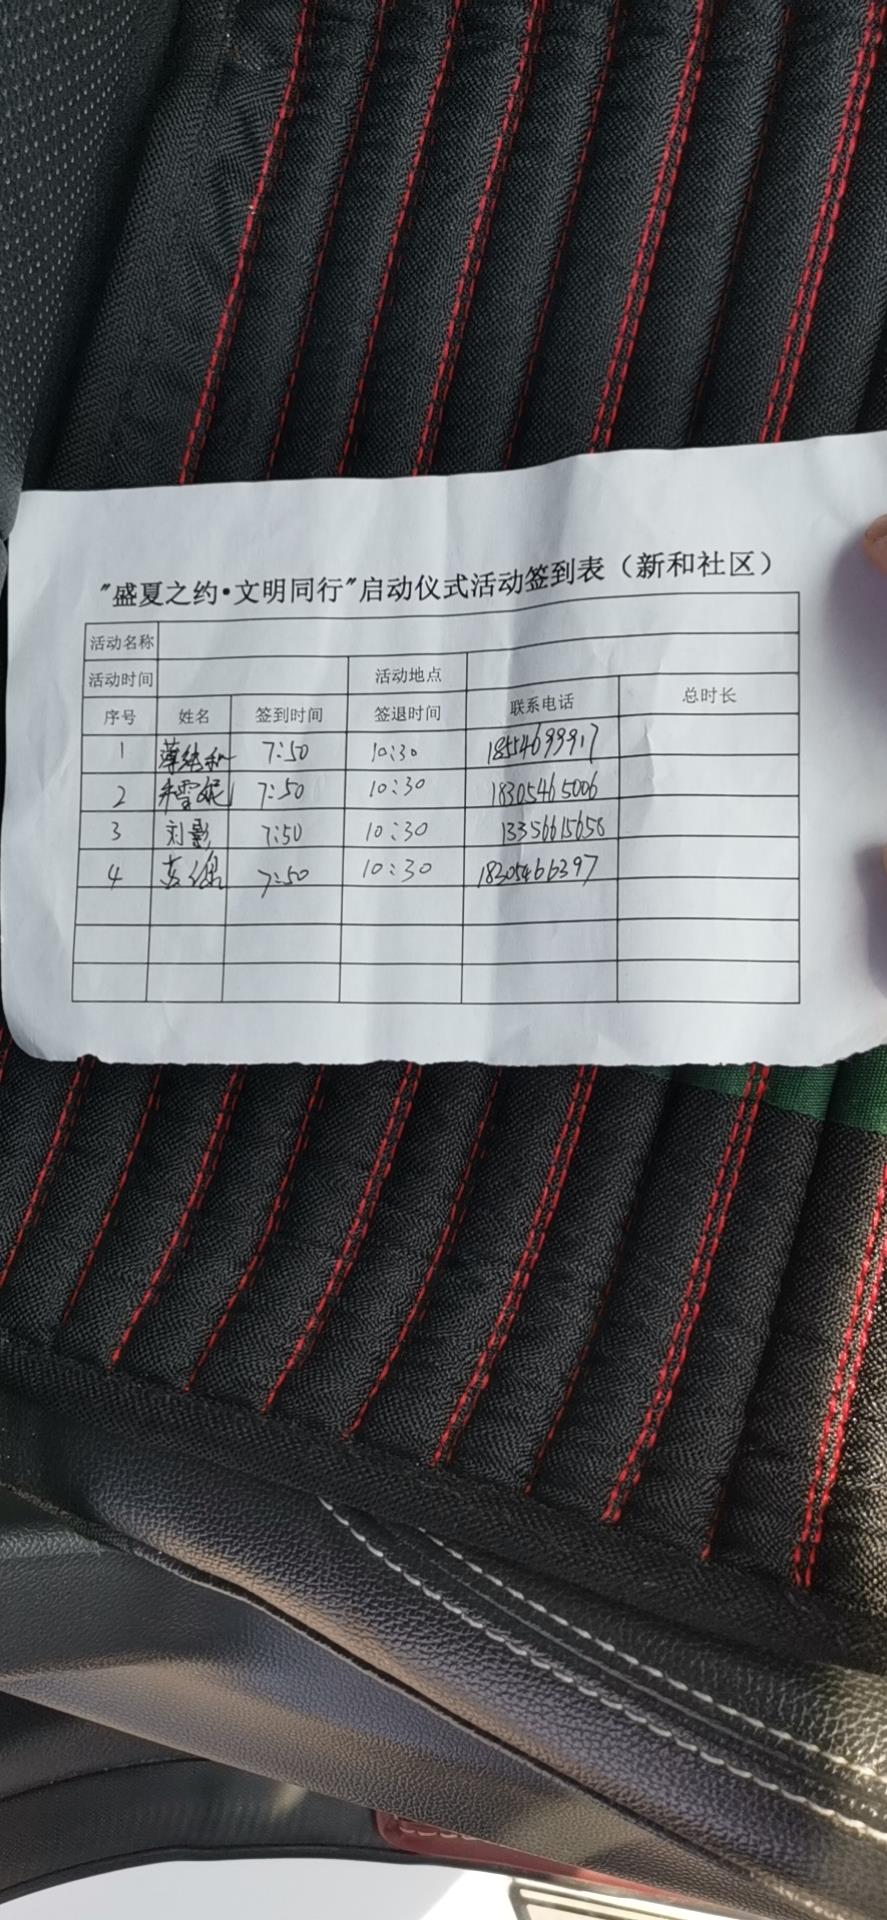 "盛夏之约•文明同行"启动仪式活动签到表（新和社区）
活动名称
活动时间 活动地点
序号 姓名 签到时间 签退时间 联系电话 总时长
1 7:50 10:30 18554699917
2 7:50 10:30 18305465006
3 刘影 7:50 10:30 13356615658
4 7:50 10:30 18305466397